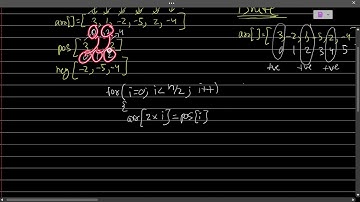 arr[]=[ 3, 1, -2, -5, 2, -4]
pos[3
neg[-2, -5, -4]
for(i=0; i<n/2; i++)
{
arr[2×i]=pos[i]
arr[]=[3, -2, 1, -5, 2, -4]
0 1 2 3 4 5
+ve +ve +ve